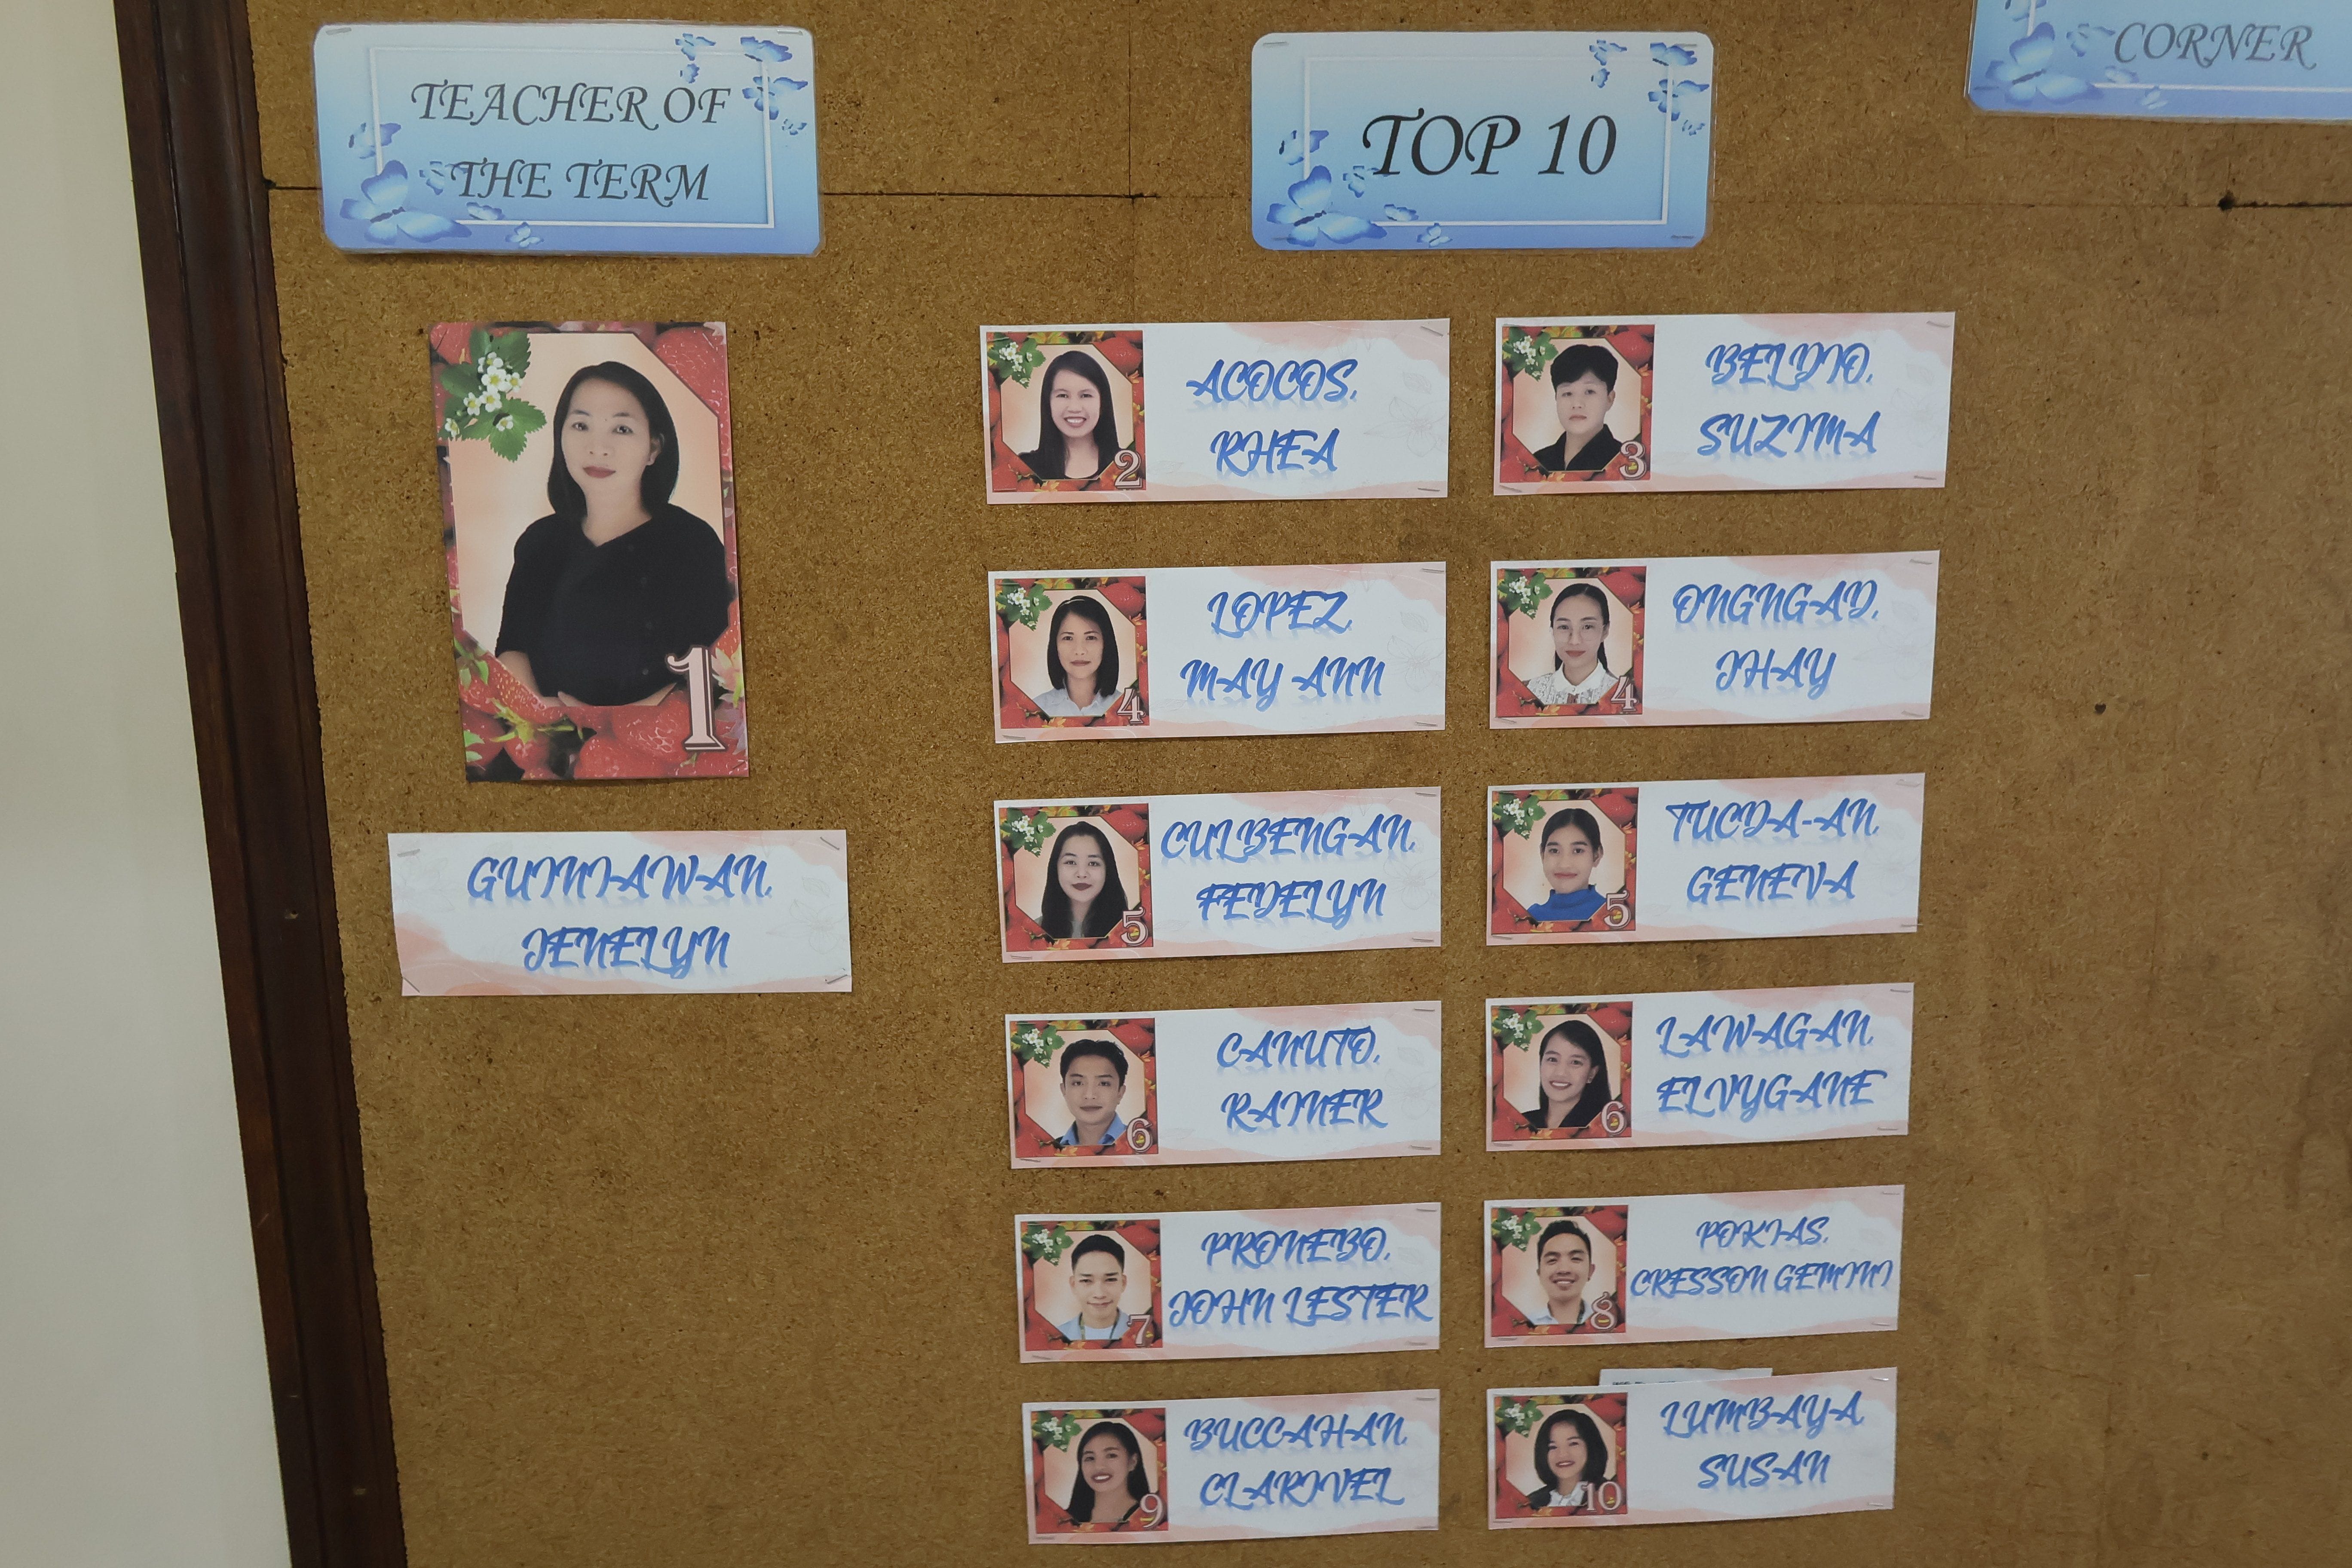 TEACHER OF
THE TERM
1
GUINIAWAN,
JENELYN
TOP 10
2
ACOCOS,
RHEA
3
BELDIO,
SUZIMA
4
LOPEZ,
MAY ANN
4
ONGNGAD,
JHAY
5
CULBENGAN,
FEDELYN
5
TUCDA-AN,
GENEVA
6
CANUTO,
RAINER
6
LAWAGAN,
ELVYGANE
7
PRONEBO,
JOHN LESTER
8
POKIAS,
CRESSON GEMINI
9
BUCCAHAN,
CLARIVEL
10
LUMBAYA
SUSAN
CORNER